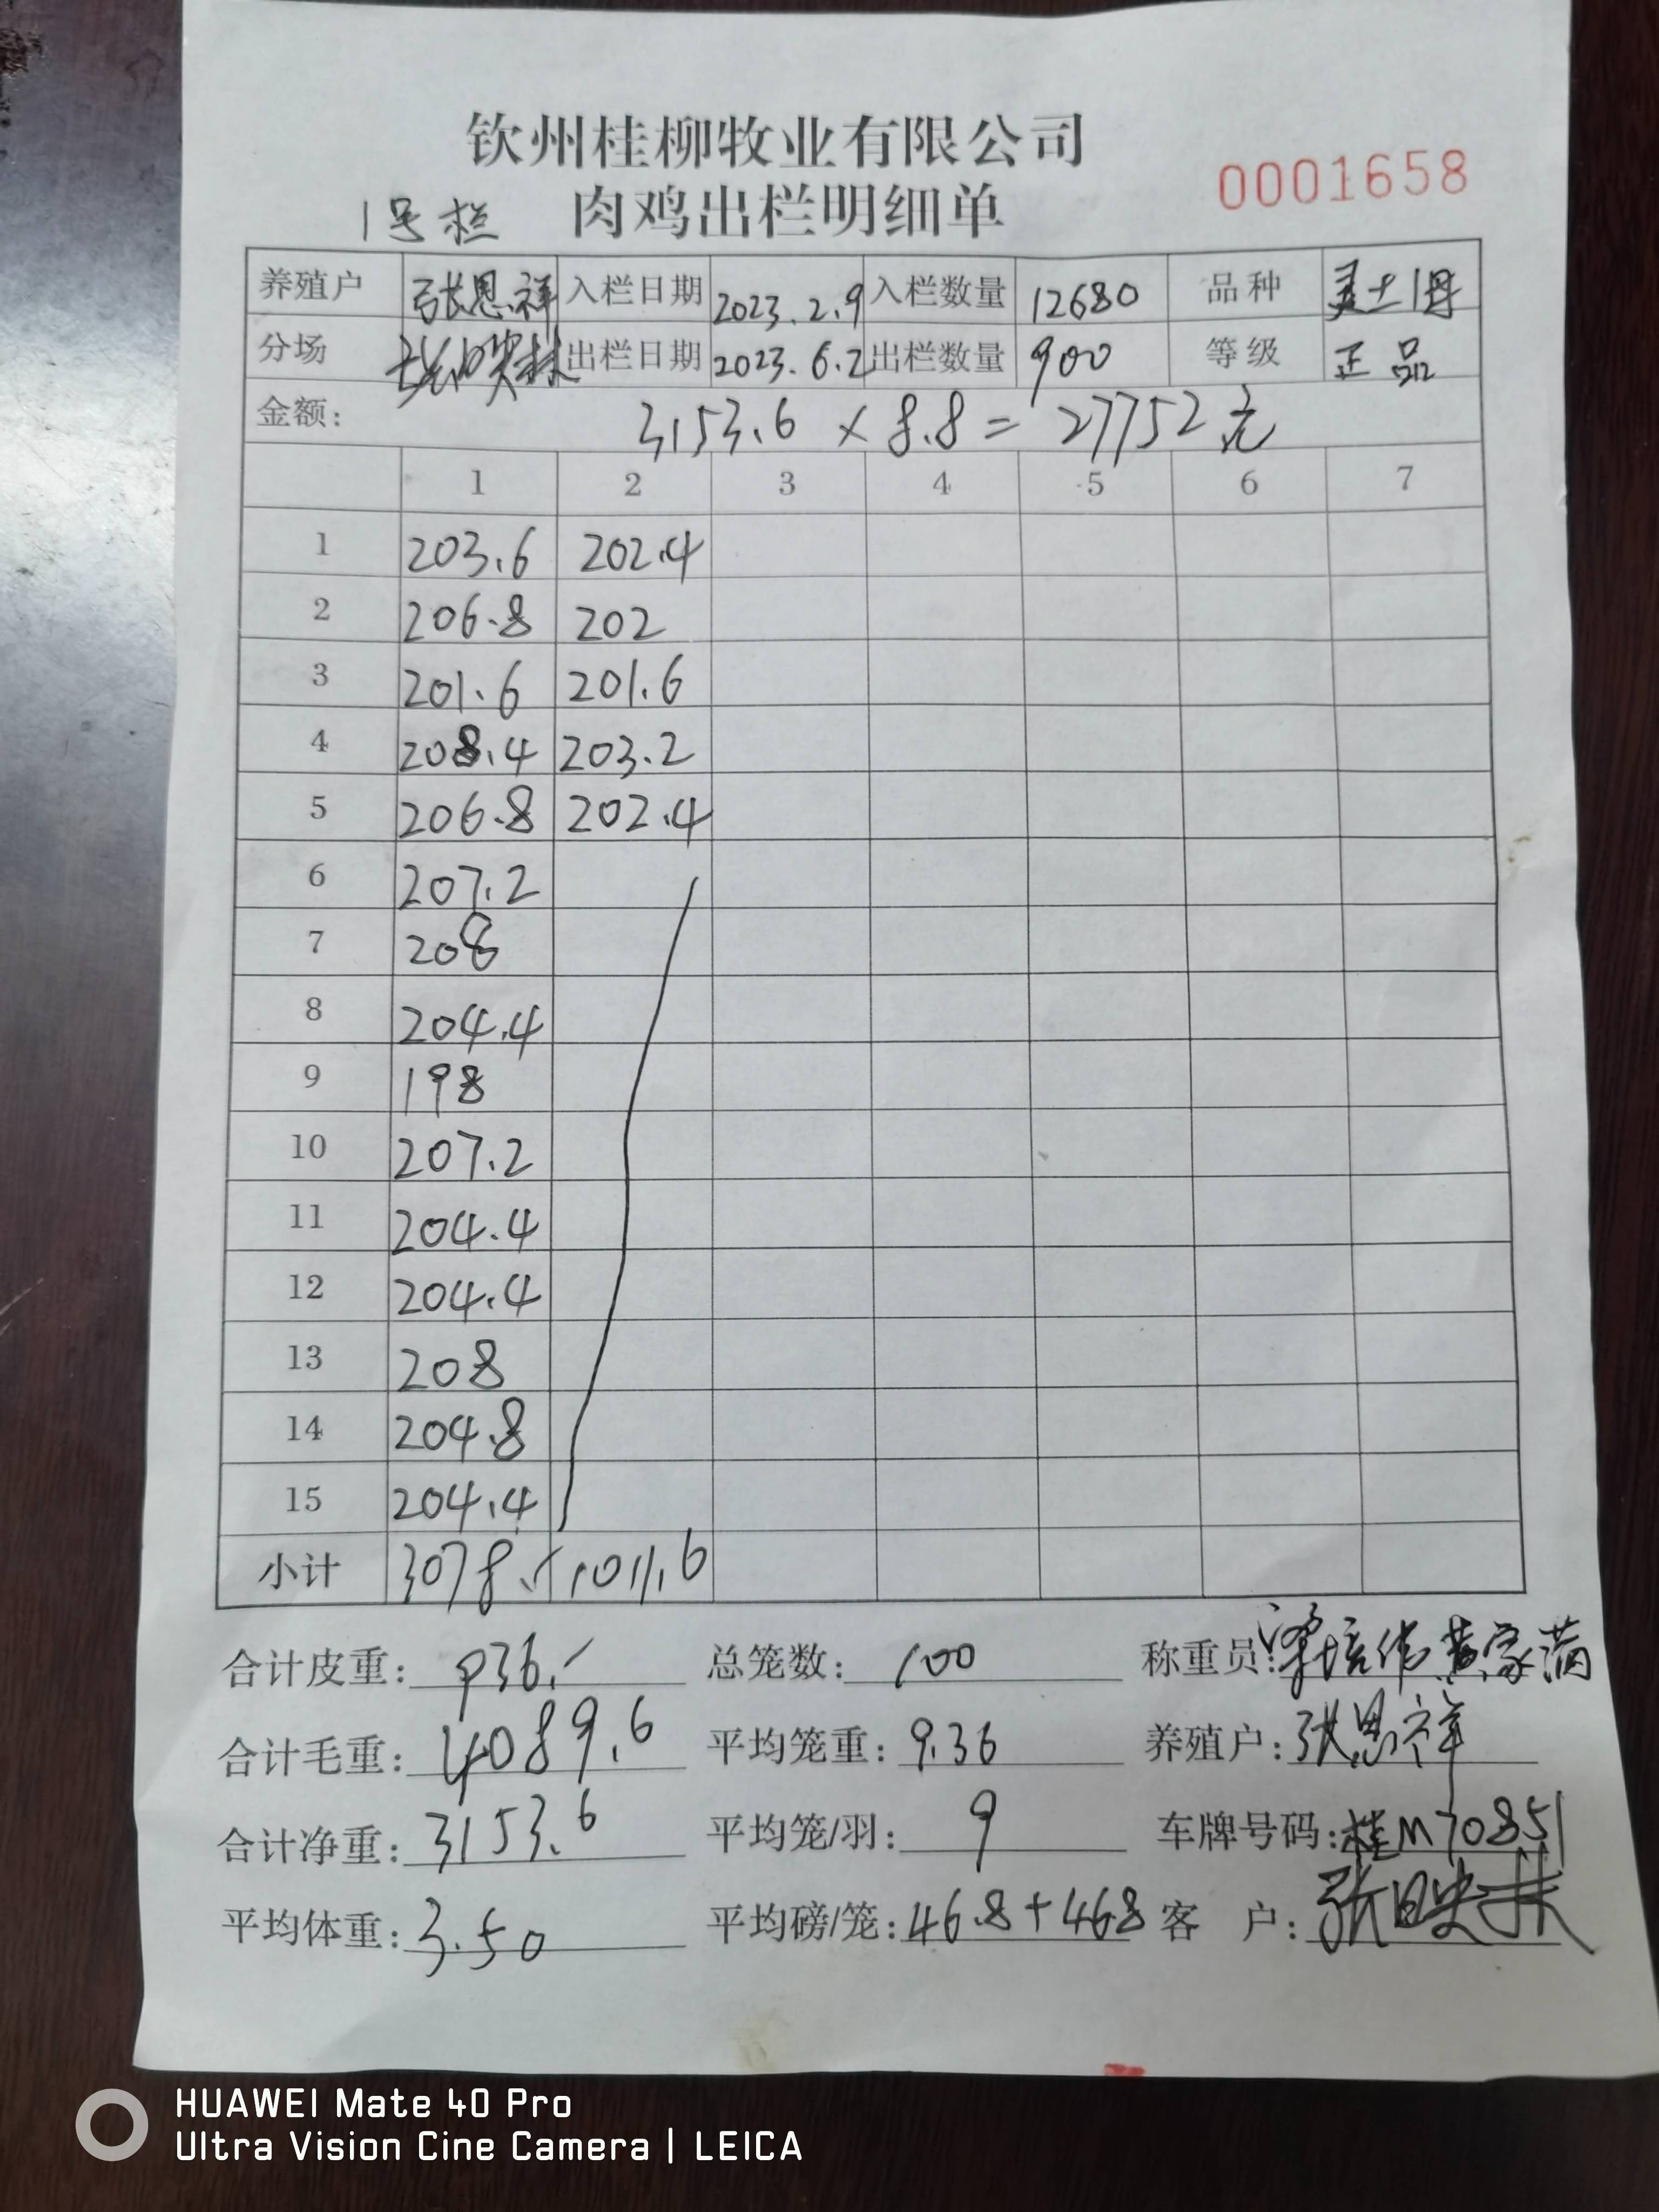 钦州桂柳牧业有限公司
0001658
1号栏 肉鸡出栏明细单
养殖户 张恩祥 入栏日期 2023.2.9 入栏数量 12680 品种 土1号
分场 出栏日期 2023.6.2 出栏数量 900 等级 正品
金额: 3153.6 × 8.8 = 27752元
1 2 3 4 5 6 7
1 203.6 202.4
2 206.8 202
3 201.6 201.6
4 208.4 203.2
5 206.8 202.4
6 207.2
7 208
8 204.4
9 198
10 207.2
11 204.4
12 204.4
13 208
14 204.8
15 204.4
小计 3078.- 1011.6
合计皮重: 936.- 总笼数: 100 称重员: 梁培伟 黄家满
合计毛重: 4089.6 平均笼重: 9.36 养殖户: 张恩祥
合计净重: 3153.6 平均笼/羽: 9 车牌号码: 桂M70851
平均体重: 3.50 平均磅/笼: 46.8+468 客户: 张映林
HUAWEI Mate 40 Pro
Ultra Vision Cine Camera | LEICA